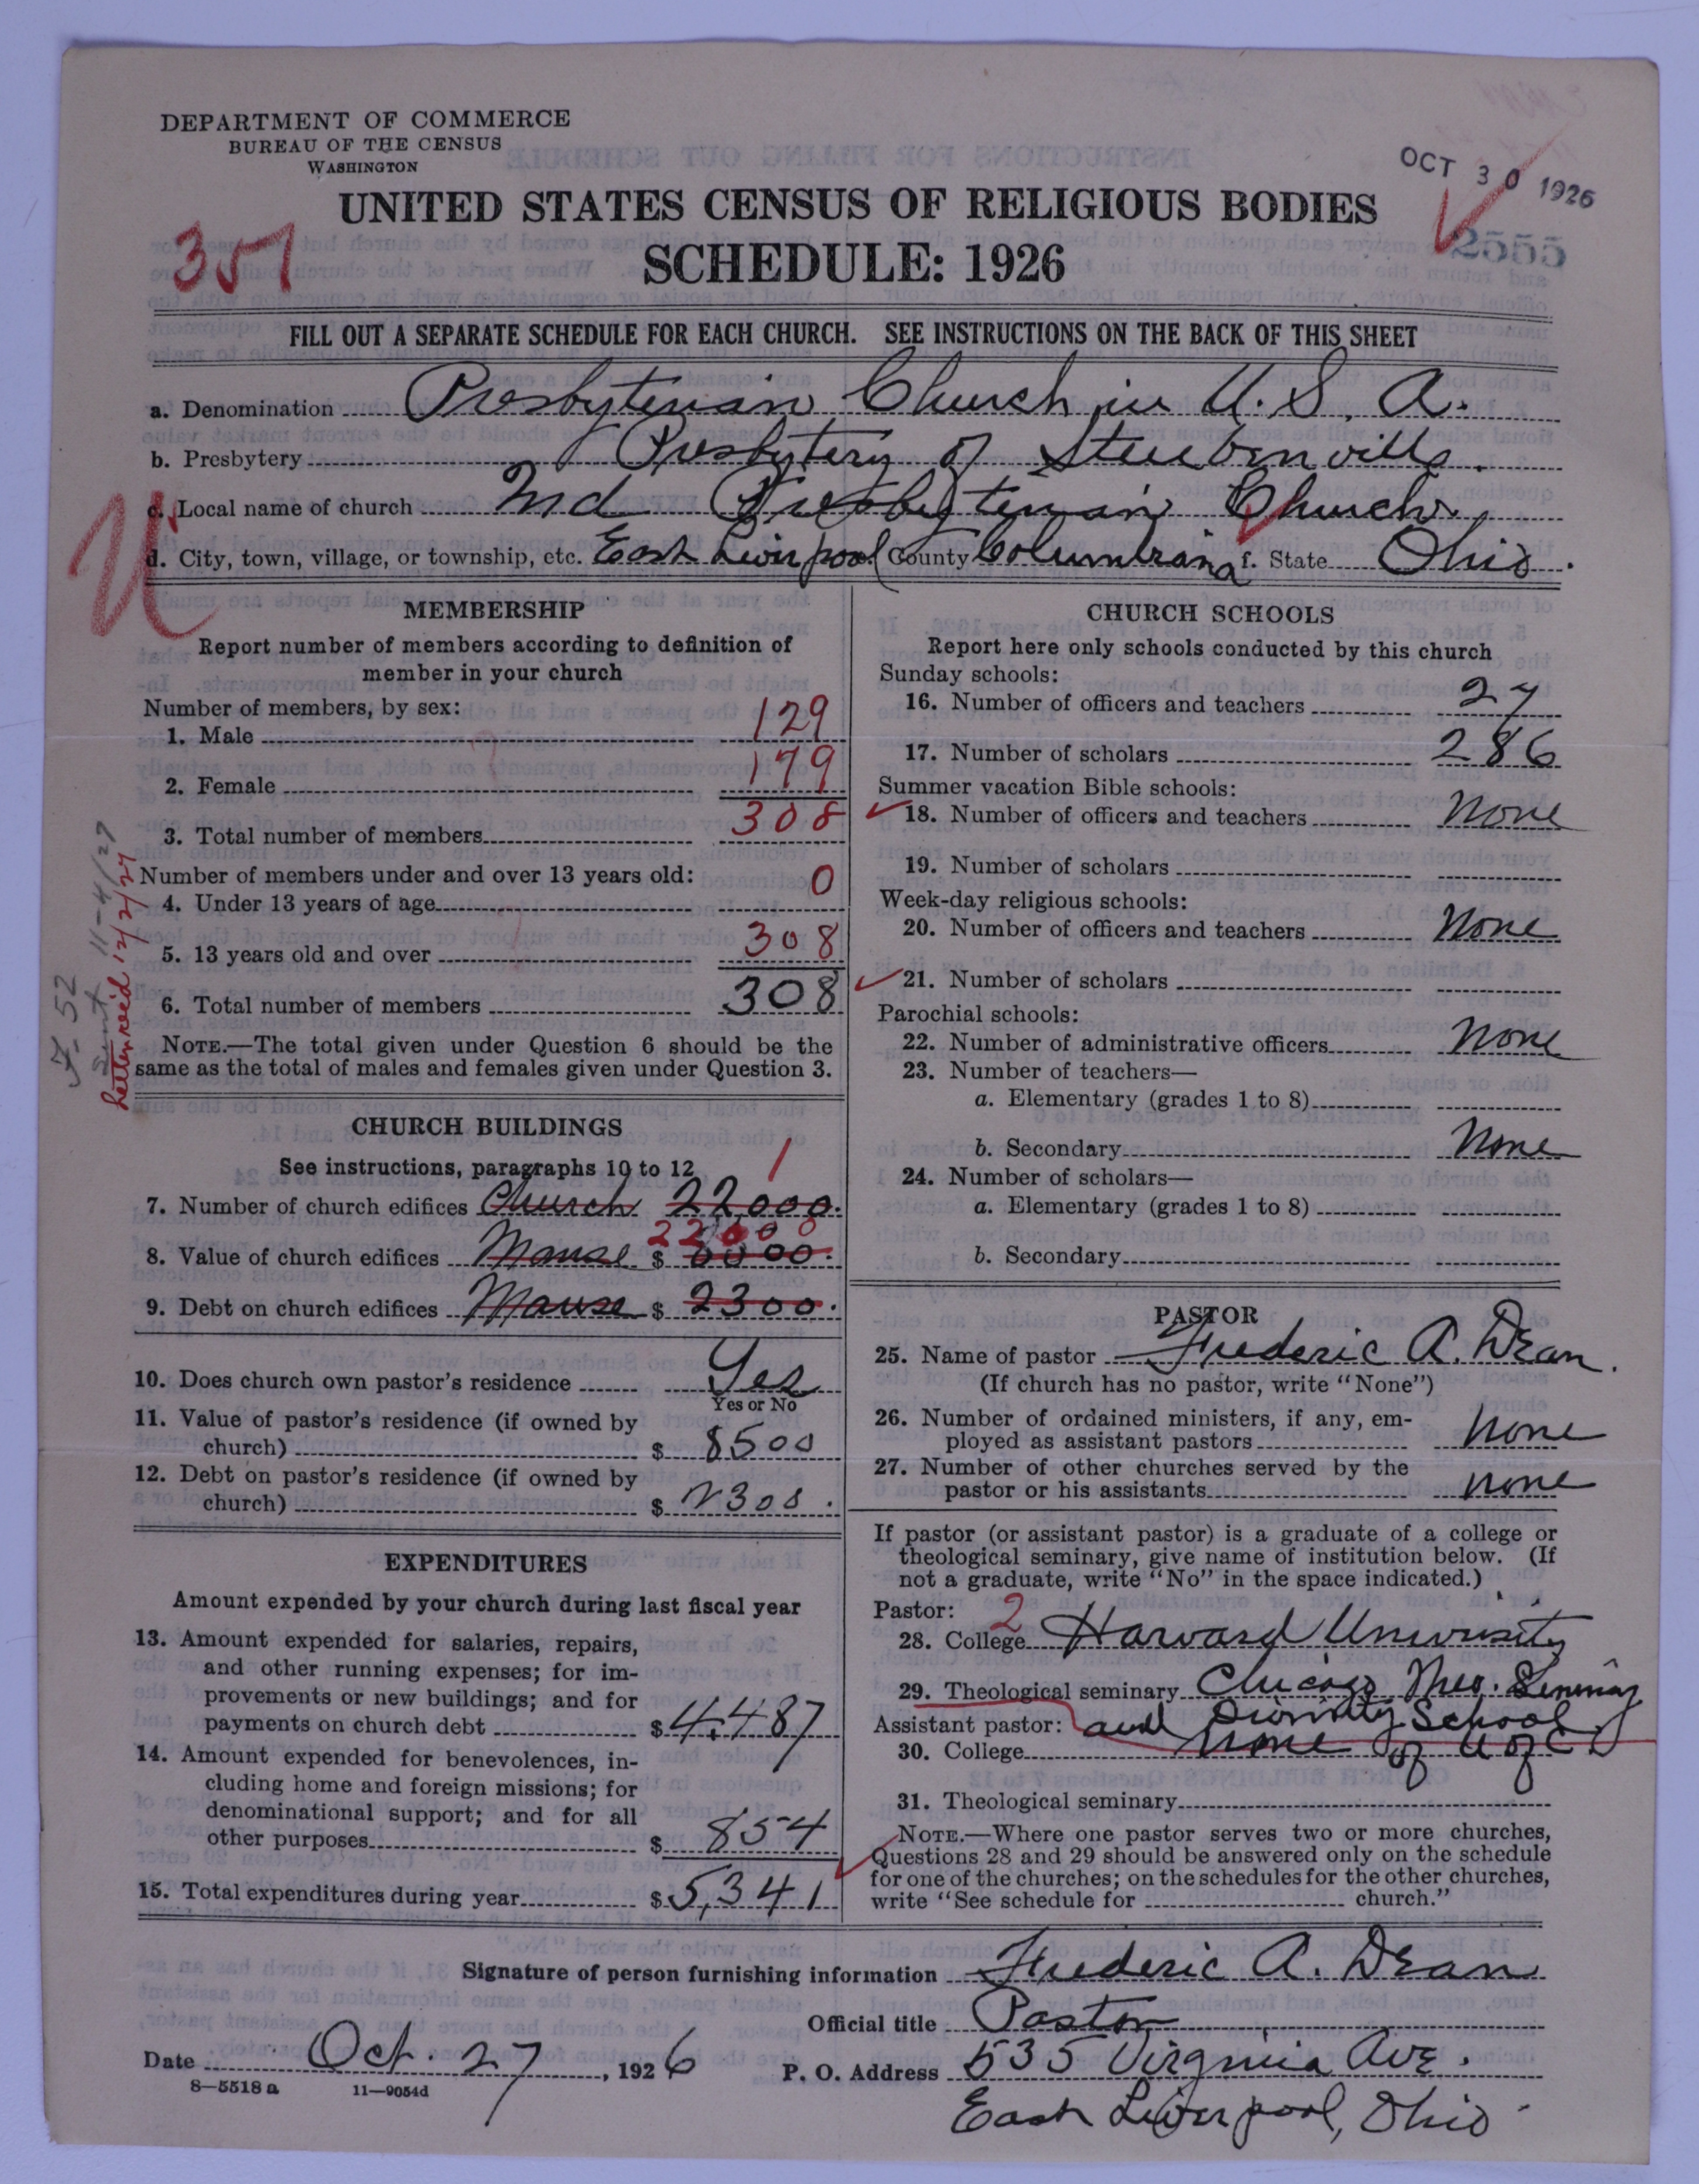 DEPARTMENT OF COMMERCE
BUREAU OF THE CENSUS
WASHINGTON
OCT 30 1926
UNITED STATES CENSUS OF RELIGIOUS BODIES
SCHEDULE: 1926
357
2555
FILL OUT A SEPARATE SCHEDULE FOR EACH CHURCH. SEE INSTRUCTIONS ON THE BACK OF THIS SHEET
a. Denomination Presbyterian Church in U.S.A.
b. Presbytery Presbytery of Steubenville.
c. Local name of church 2nd Presbyterian Church
d. City, town, village, or township, etc. East Liverpool County Columbiana f. State Ohio.
MEMBERSHIP
Report number of members according to definition of
member in your church
Number of members, by sex:
1. Male 129
2. Female 179
3. Total number of members 308
Number of members under and over 13 years old:
4. Under 13 years of age 0
5. 13 years old and over 308
6. Total number of members 308
NOTE.—The total given under Question 6 should be the
same as the total of males and females given under Question 3.
F-52
Sent 11-4/27
Letter rec'd 12/2/27
CHURCH BUILDINGS
See instructions, paragraphs 10 to 12
1
7. Number of church edifices Church 22000.
22000
8. Value of church edifices Manse $ 8500.
9. Debt on church edifices Manse $ 2300.
10. Does church own pastor's residence Yes
Yes or No
11. Value of pastor's residence (if owned by
church) $ 8500
12. Debt on pastor's residence (if owned by
church) $ 2300.
EXPENDITURES
Amount expended by your church during last fiscal year
13. Amount expended for salaries, repairs,
and other running expenses; for im-
provements or new buildings; and for
payments on church debt $ 4,487
14. Amount expended for benevolences, in-
cluding home and foreign missions; for
denominational support; and for all
other purposes $ 854
15. Total expenditures during year $ 5,341
CHURCH SCHOOLS
Report here only schools conducted by this church
Sunday schools:
16. Number of officers and teachers 27
17. Number of scholars 286
Summer vacation Bible schools:
18. Number of officers and teachers None
19. Number of scholars
Week-day religious schools:
20. Number of officers and teachers None
21. Number of scholars
Parochial schools:
22. Number of administrative officers None
23. Number of teachers—
a. Elementary (grades 1 to 8)
b. Secondary None
24. Number of scholars—
a. Elementary (grades 1 to 8)
b. Secondary
PASTOR
25. Name of pastor Frederic A. Dean.
(If church has no pastor, write "None")
26. Number of ordained ministers, if any, em-
ployed as assistant pastors None
27. Number of other churches served by the
pastor or his assistants None
If pastor (or assistant pastor) is a graduate of a college or
theological seminary, give name of institution below. (If
not a graduate, write "No" in the space indicated.)
Pastor: 2
28. College Harvard University
29. Theological seminary Chicago Theo. Seminary
Assistant pastor: and Divinity School
30. College None of U of C
31. Theological seminary
NOTE.—Where one pastor serves two or more churches,
Questions 28 and 29 should be answered only on the schedule
for one of the churches; on the schedules for the other churches,
write "See schedule for church."
Signature of person furnishing information Frederic A. Dean
Official title Pastor
Date Oct. 27, 1926 P. O. Address 535 Virginia Ave.
8—5518a 11—9054d
East Liverpool, Ohio